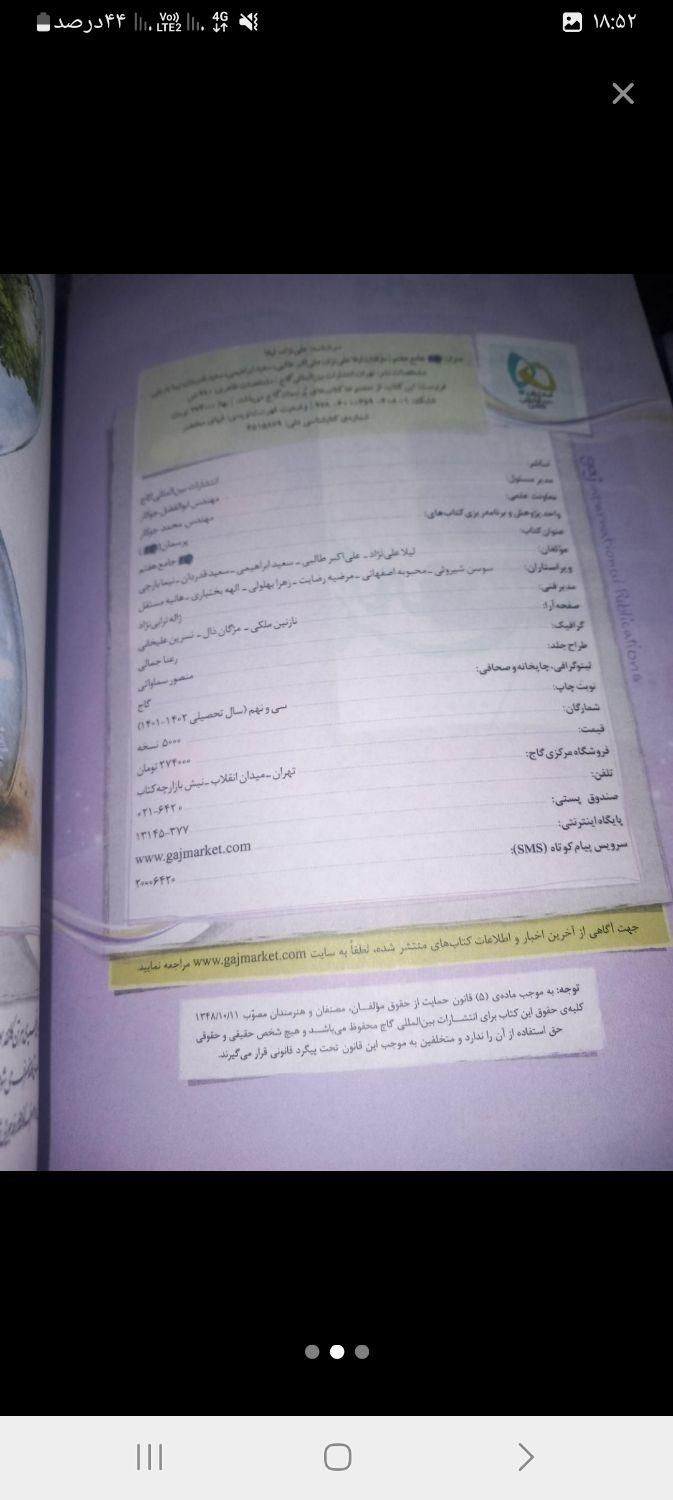 ۱۸:۵۲
۴۴درصد
Vo)) LTE2
4G
سرشناسه: علی نژاد، لیلا
شماره‌ی کتابشناسی ملی: ۴۵۱۵۸۷۹
gaj international Publications
ناشر: انتشارات بین‌المللی گاج
مدیر مسئول: مهندس ابوالفضل جوکار
معاونت علمی: مهندس محمد جوکار
واحد پژوهش و برنامه‌ریزی کتاب‌های: پرسمان
عنوان کتاب: جامع هفتم
مؤلفان: لیلا علی‌نژاد ـ علی‌اکبر طالبی ـ سعید ابراهیمی ـ سعید قدردان ـ نیما یارجی
ویراستاران: سوسن شیروئی ـ محبوبه اصفهانی ـ مرضیه رضایت ـ زهرا بهلولی ـ الهه بختیاری ـ هانیه مستقل
مدیر فنی: ژاله ترابی‌نژاد
صفحه‌آرا: نازنین ملکی ـ مژگان ذال ـ نسرین علیخانی
گرافیک: رعنا جمالی
طراح جلد: منصور سماواتی
لیتوگرافی، چاپخانه و صحافی: گاج
نوبت چاپ: سی و نهم (سال تحصیلی ۱۴۰۲-۱۴۰۱)
شمارگان: ۵۰۰۰ نسخه
قیمت: ۲۷۴۰۰۰ تومان
فروشگاه مرکزی گاج: تهران ـ میدان انقلاب ـ نبش بازارچه کتاب
تلفن: ۰۲۱-۶۴۲۰
صندوق پستی: ۱۳۱۴۵-۳۷۷
پایگاه اینترنتی: www.gajmarket.com
سرویس پیام کوتاه (SMS): ۲۰۰۰۶۴۲۰
جهت آگاهی از آخرین اخبار و اطلاعات کتاب‌های منتشر شده، لطفاً به سایت www.gajmarket.com مراجعه نمایید.
توجه: به موجب ماده‌ی (۵) قانون حمایت از حقوق مؤلفـان، مصنفان و هنرمندان مصوّب ۱۳۴۸/۱۰/۱۱
کلیه‌ی حقوق این کتاب برای انتشـارات بین‌المللی گاج محفوظ می‌باشـد و هیچ شخص حقیقی و حقوقی
حق استفاده از آن را ندارد و متخلفین به موجب این قانون تحت پیگرد قانونی قرار می‌گیرند.